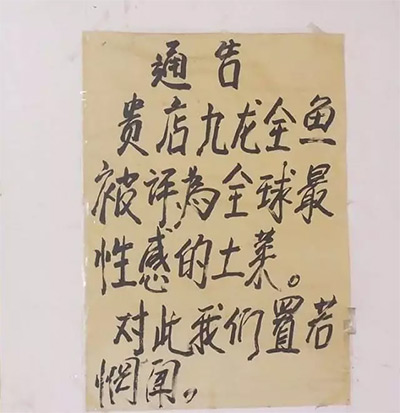 通告
贵店九龙全鱼
被评為全球最
性感的土菜。
对此我们置若
惘闻。